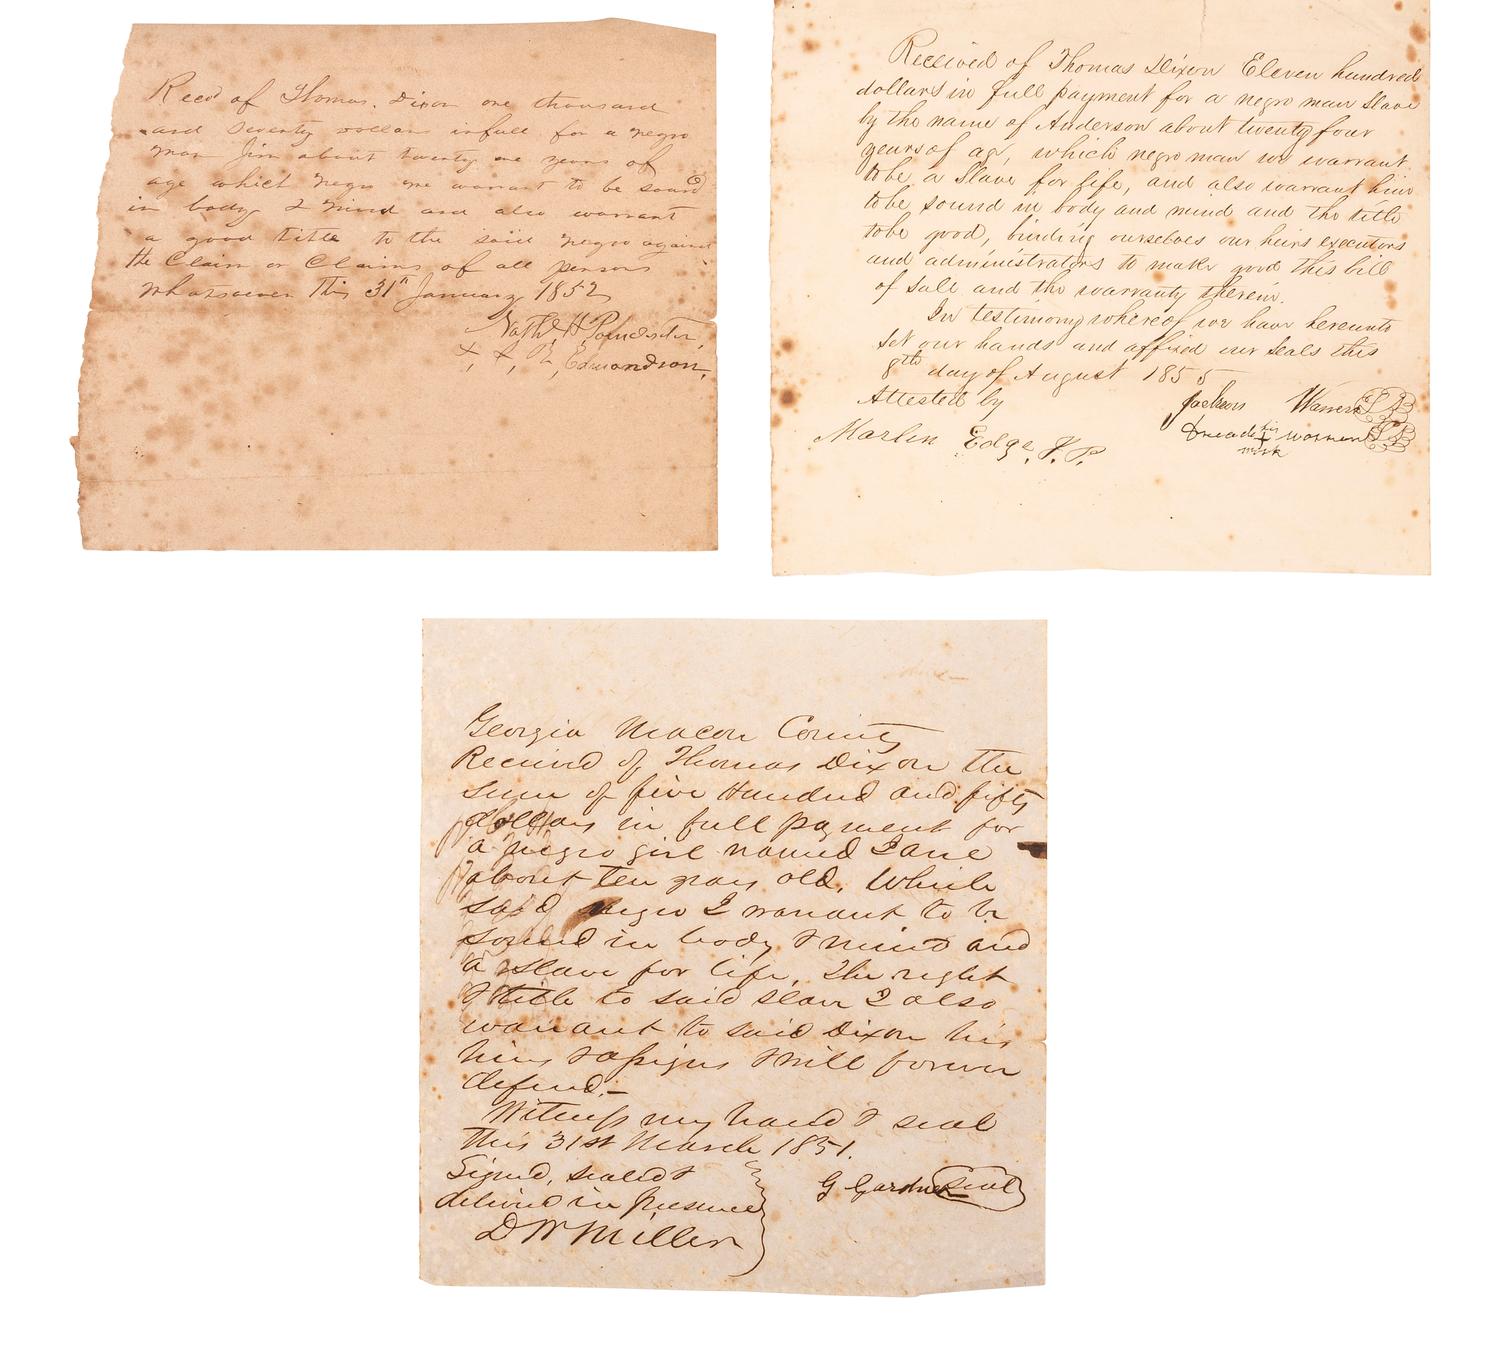 Recd of Thomas Dixon one thousand
and Seventy dollars in full for a negro
man Jim about twenty one years of
age which negro we warrant to be sound
in body & mind and also warrant
a good title to the said negro against
the Claim or Claims of all persons
whatsoever this 31st January 1852
Nathl H Poindexter,
Edmondson,
Received of Thomas Dixon Eleven hundred
dollars in full payment for a negro man Slave
by the name of Anderson about twenty four
years of age, which negro man we warrant
to be a Slave for life, and also warrant him
to be sound in body and mind and the title
to be good, binding ourselves our heirs executors
and administrators to make good this bill
of Sale and the warranty therein.
In testimony whereof we have hereunto
Set our hands and affixed our Seals this
8th day of August 1855
Attested by
Jackson Warren LS
his
Marlin Edge J. P.
+ Warren LS
mark
Georgia Macon County
Received of Thomas Dixon the
sum of five Hundred and fifty
dollars in full payment for
a negro girl named Jane
about ten years old. Which
said negro I warrant to be
sound in body & mind and
a slave for life, The right
& title to said slave I also
warrant to said Dixon his
heirs & assigns & will forever
defend.—
Witness my hand & seal
This 31st March 1851.
Signed, sealed &
G Gardner Seal
delivered in presence
D W Miller